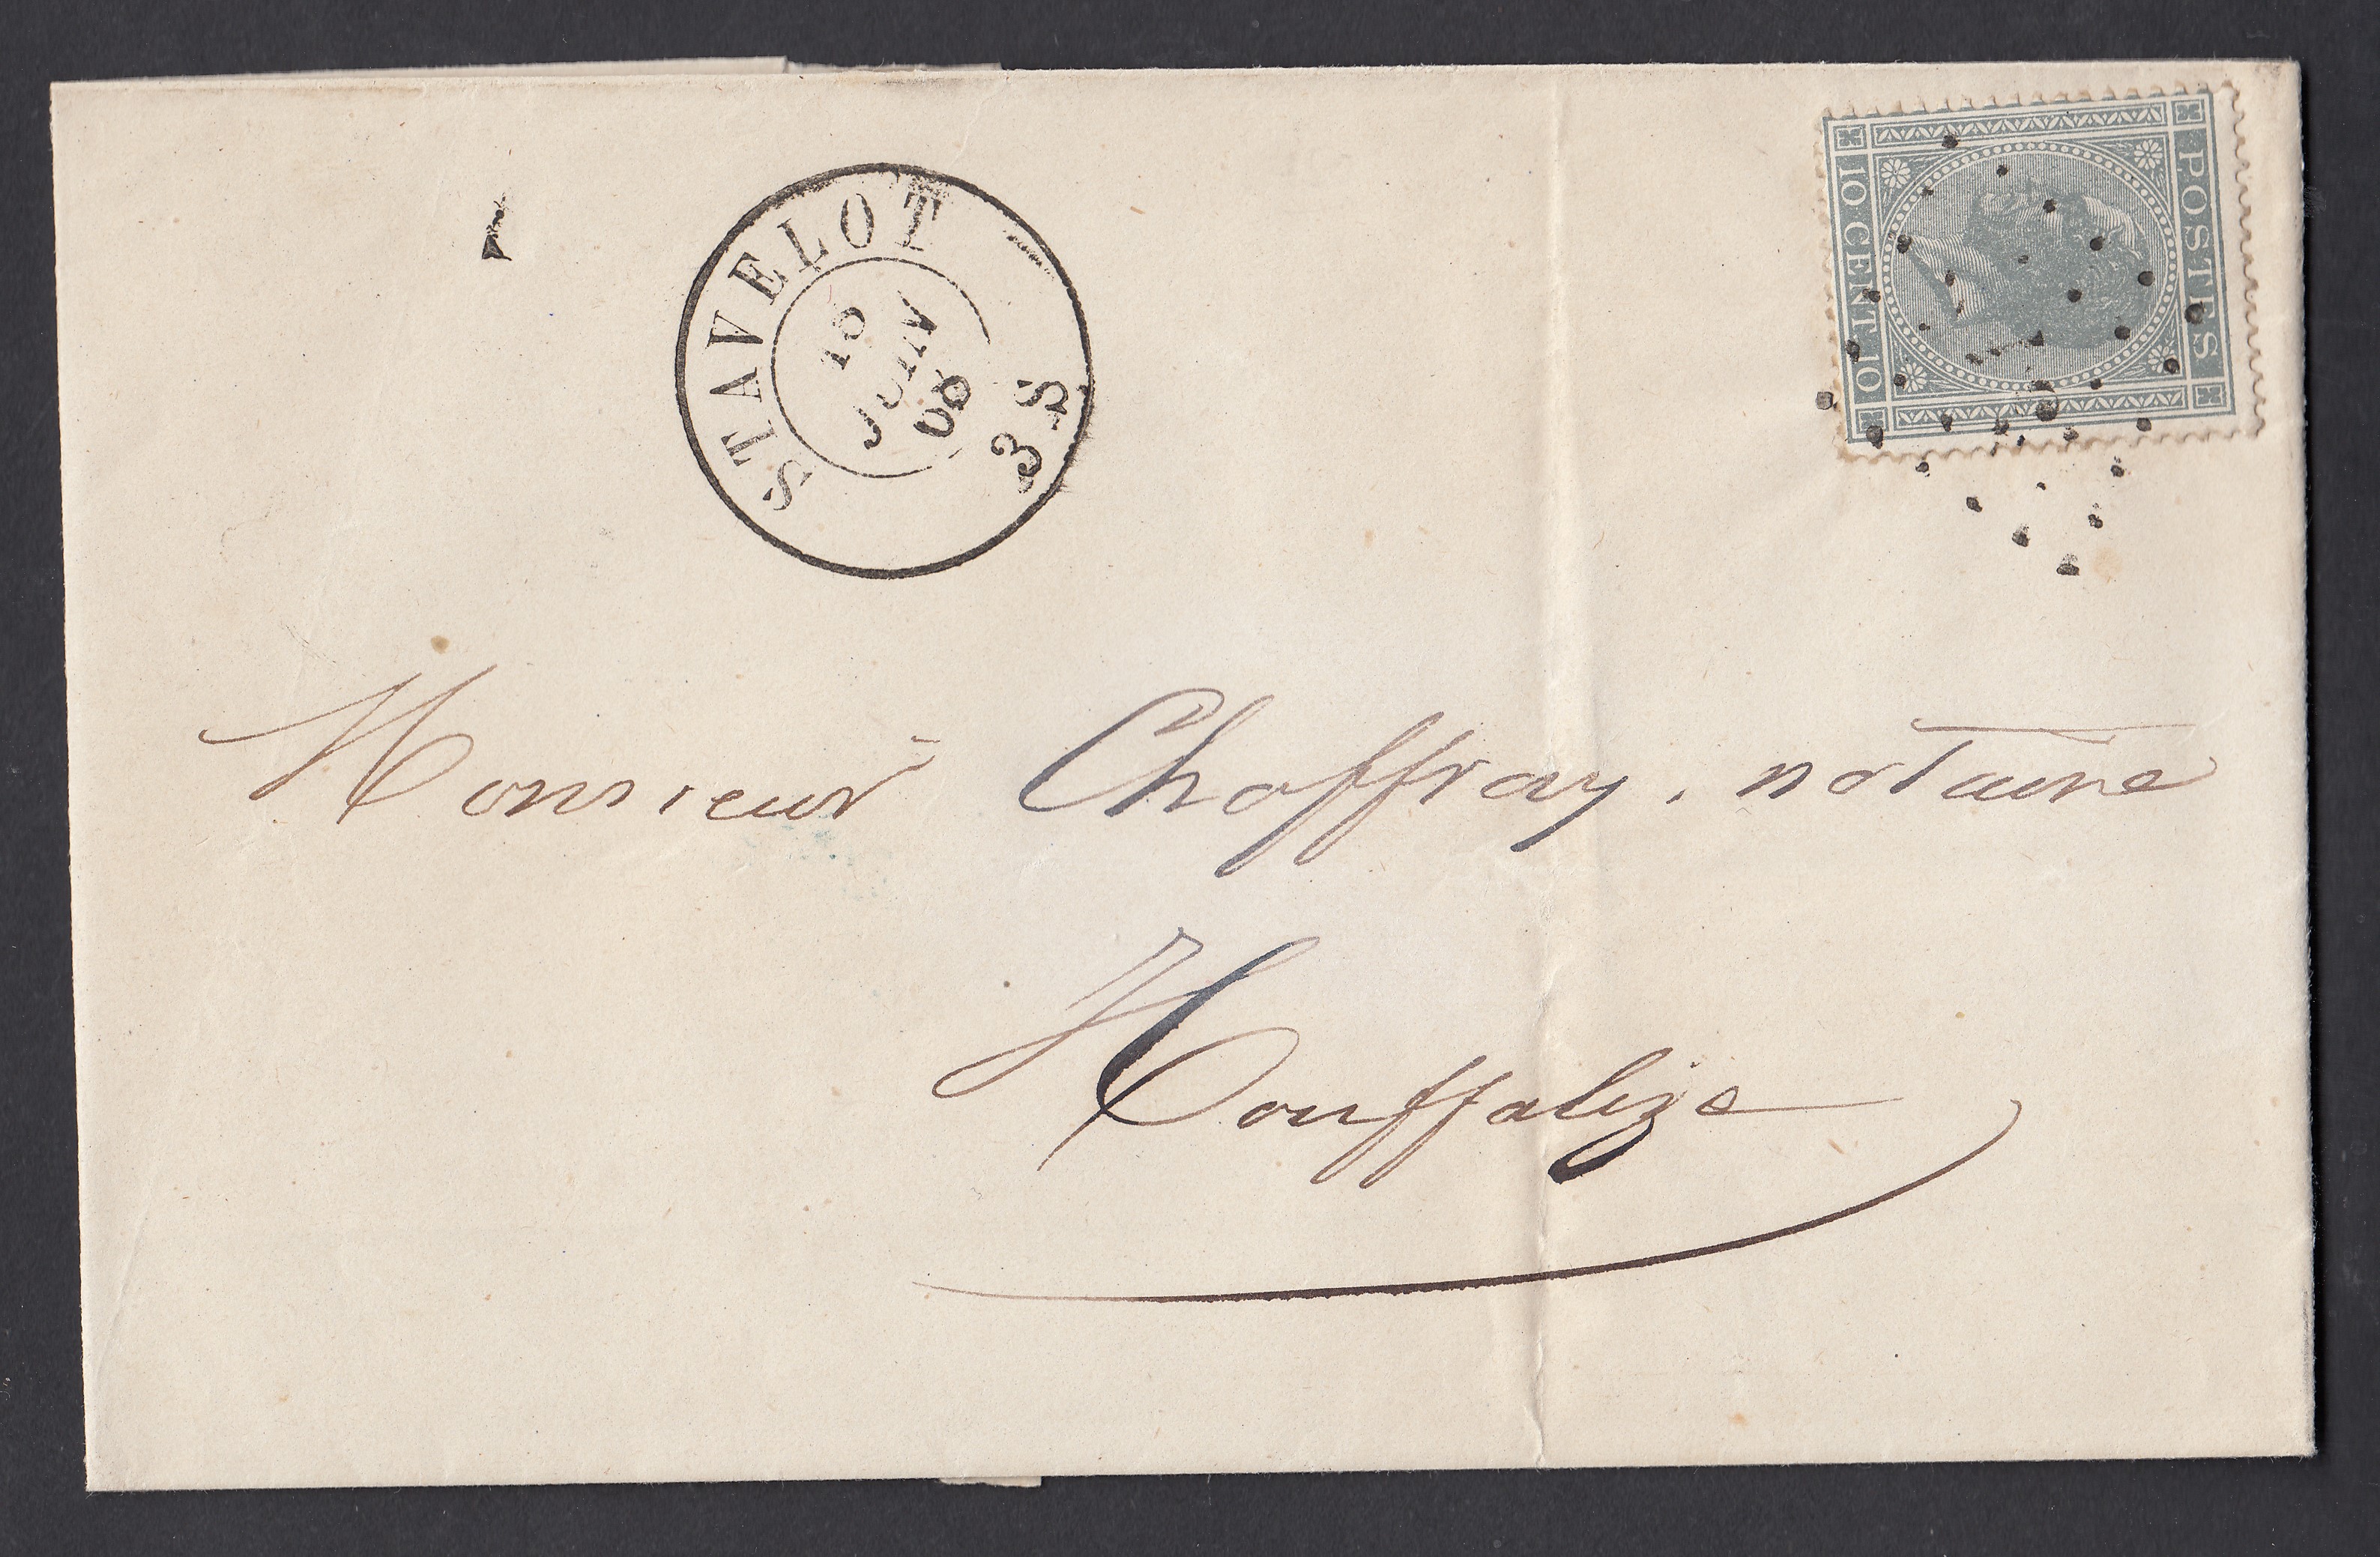 STAVELOT
JUIN
3 S
POSTES
10 CENT 10
Monsieur Chaffray, notaire
Houffalize